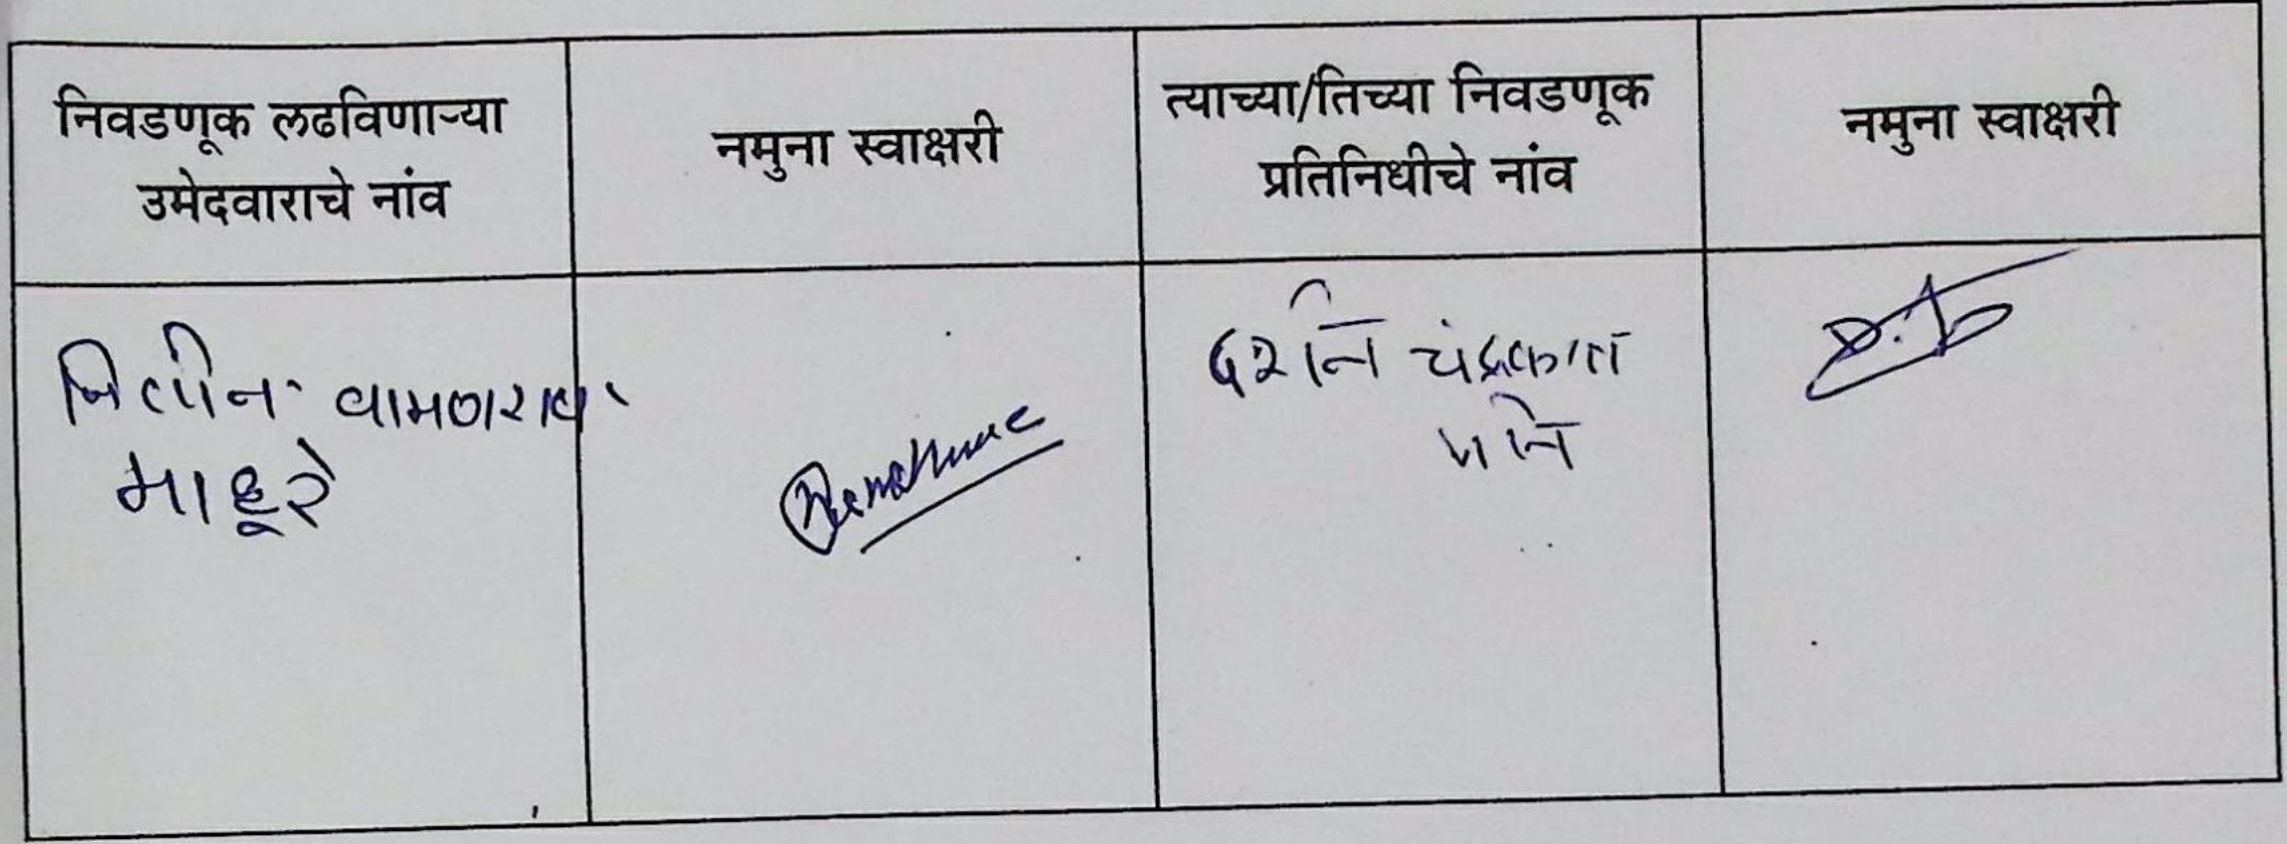 निवडणूक लढविणाऱ्या
उमेदवाराचे नांव
नमुना स्वाक्षरी
त्याच्या/तिच्या निवडणूक
प्रतिनिधीचे नांव
नमुना स्वाक्षरी
नितीन वामणराव
माहूरे
चंद्रकांत